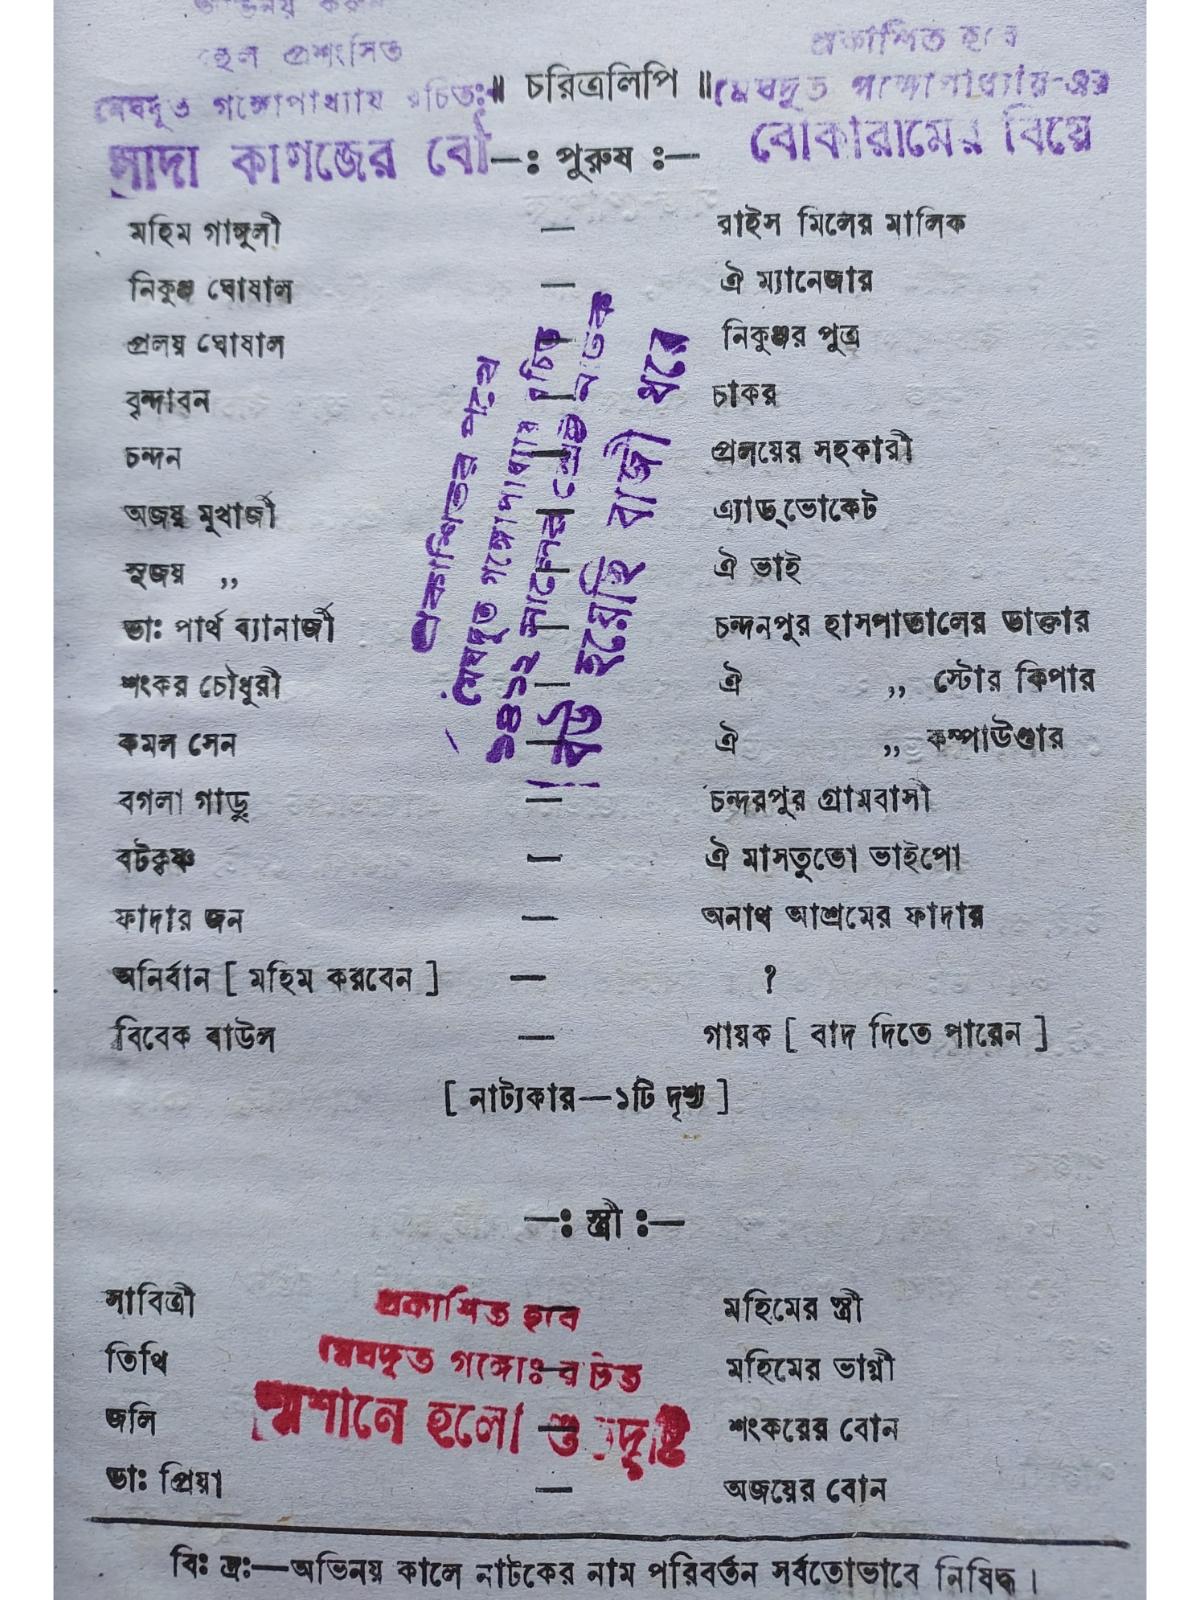 অভিনয় করুন
হল প্রশংসিত
মেঘদূত গঙ্গোপাধ্যায় রচিতঃ
সাদা কাগজের বৌ
প্রকাশিত হবে
মেঘদূত গঙ্গোপাধ্যায়-এর
বোকারামের বিয়ে
॥ চরিত্রলিপি ॥
—ঃ পুরুষ ঃ—
মহিম গাঙ্গুলী — রাইস মিলের মালিক
নিকুঞ্জ ঘোষাল — ঐ ম্যানেজার
প্রলয় ঘোষাল — নিকুঞ্জর পুত্র
বৃন্দাবন — চাকর
চন্দন — প্রলয়ের সহকারী
অজয় মুখার্জী — এ্যাড্‌ভোকেট
সুজয় ,, — ঐ ভাই
ডাঃ পার্থ ব্যানার্জী — চন্দনপুর হাসপাতালের ডাক্তার
শংকর চৌধুরী — ঐ ,, স্টোর কিপার
কমল সেন — ঐ ,, কম্পাউণ্ডার
বগলা গাড়ু — চন্দরপুর গ্রামবাসী
বটকৃষ্ণ — ঐ মাসতুতো ভাইপো
ফাদার জন — অনাথ আশ্রমের ফাদার
অনির্বান [ মহিম করবেন ] — ?
বিবেক বাউল — গায়ক [ বাদ দিতে পারেন ]
[ নাট্যকার—১টি দৃশ্য ]
প্রকাশিতর পথে
মেঘদূত গঙ্গোপাধ্যায় রচিত
১৪১২ সালের শ্রেষ্ঠ নাটক
বউ হয়েছি বাজী ধরে
—ঃ স্ত্রী ঃ—
সাবিত্রী — মহিমের স্ত্রী
তিথি — মহিমের ভাগ্নী
জলি — শংকরের বোন
ডাঃ প্রিয়া — অজয়ের বোন
প্রকাশিত হবে
মেঘদূত গঙ্গোঃ রচিত
শ্মশানে হলো শুভদৃষ্টি
বিঃ দ্রঃ—অভিনয় কালে নাটকের নাম পরিবর্তন সর্বতোভাবে নিষিদ্ধ।